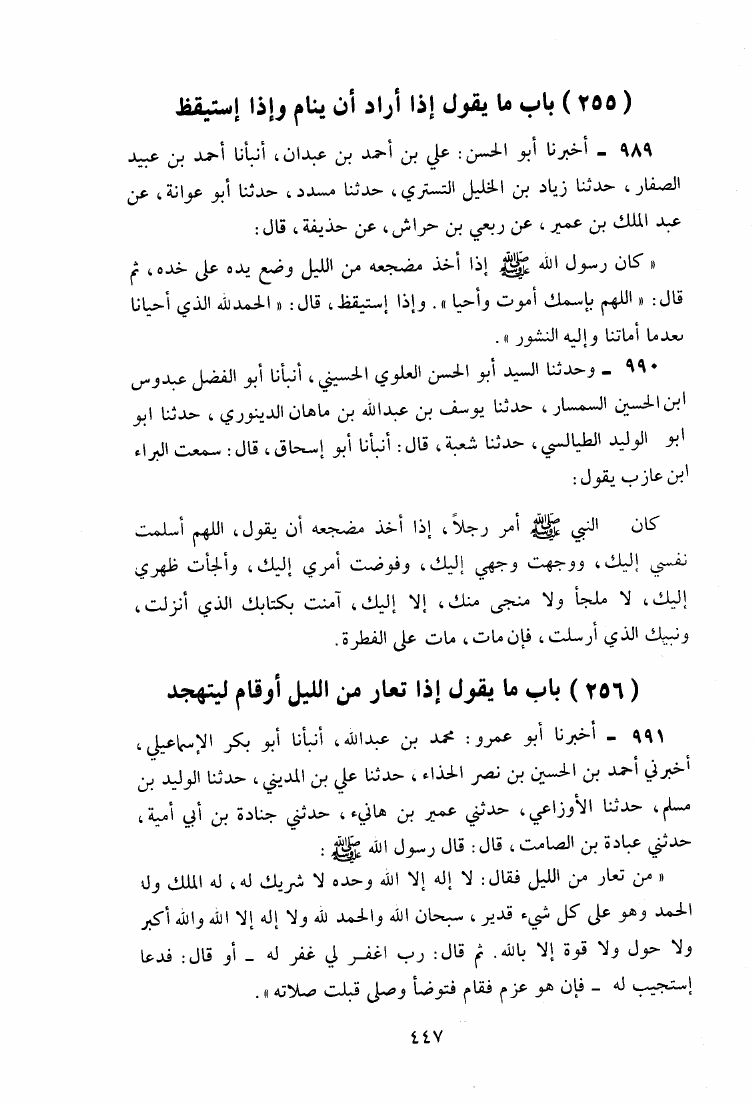 ( ٢٥٥ ) باب ما يقول إذا أراد أن ينام وإذا إستيقظ
٩٨٩ ـ أخبرنا أبو الحسن : علي بن أحمد بن عبدان ، أنبأنا أحمد بن عبيد
الصفار ، حدثنا زياد بن الخليل التستري ، حدثنا مسدد ، حدثنا أبو عوانة ، عن
عبد الملك بن عمير ، عن ربعي بن حراش ، عن حذيفة ، قال :
« كان رسول الله ﷺ إذا أخذ مضجعه من الليل وضع يده على خده ، ثم
قال : « اللهم بإسمك أموت وأحيا » . وإذا إستيقظ ، قال : « الحمدلله الذي أحيانا
بعدما أماتنا وإليه النشور » .
٩٩٠ ـ وحدثنا السيد أبو الحسن العلوي الحسيني ، أنبأنا أبو الفضل عبدوس
ابن الحسين السمسار ، حدثنا يوسف بن عبدالله بن ماهان الدينوري ، حدثنا ابو
ابو الوليد الطيالسي ، حدثنا شعبة ، قال : أنبأنا أبو إسحاق ، قال : سمعت البراء
ابن عازب يقول :
كان النبي ﷺ أمر رجلاً ، إذا أخذ مضجعه أن يقول ، اللهم أسلمت
نفسي إليك ، ووجهت وجهي إليك ، وفوضت أمري إليك ، وألجأت ظهري
إليك ، لا ملجأ ولا منجى منك ، إلا إليك ، آمنت بكتابك الذي أنزلت ،
ونبيك الذي أرسلت ، فإن مات ، مات على الفطرة .
( ٢٥٦ ) باب ما يقول إذا تعار من الليل أوقام ليتهجد
٩٩١ ـ أخبرنا أبو عمرو : محمد بن عبدالله ، أنبأنا أبو بكر الإسماعيلي ،
أخبرني أحمد بن الحسين بن نصر الحذاء ، حدثنا علي بن المديني ، حدثنا الوليد بن
مسلم ، حدثنا الأوزاعي ، حدثني عمير بن هانيء ، حدثني جنادة بن أبي أمية ،
حدثني عبادة بن الصامت ، قال : قال رسول الله ﷺ :
« من تعار من الليل فقال : لا إله إلا الله وحده لا شريك له ، له الملك وله
الحمد وهو على كل شيء قدير ، سبحان الله والحمد لله ولا إله إلا الله والله أكبر
ولا حول ولا قوة إلا بالله . ثم قال : رب اغفر لي غفر له ـ أو قال : فدعا
إستجيب له ـ فإن هو عزم فقام فتوضأ وصلى قبلت صلاته » .
٤٤٧